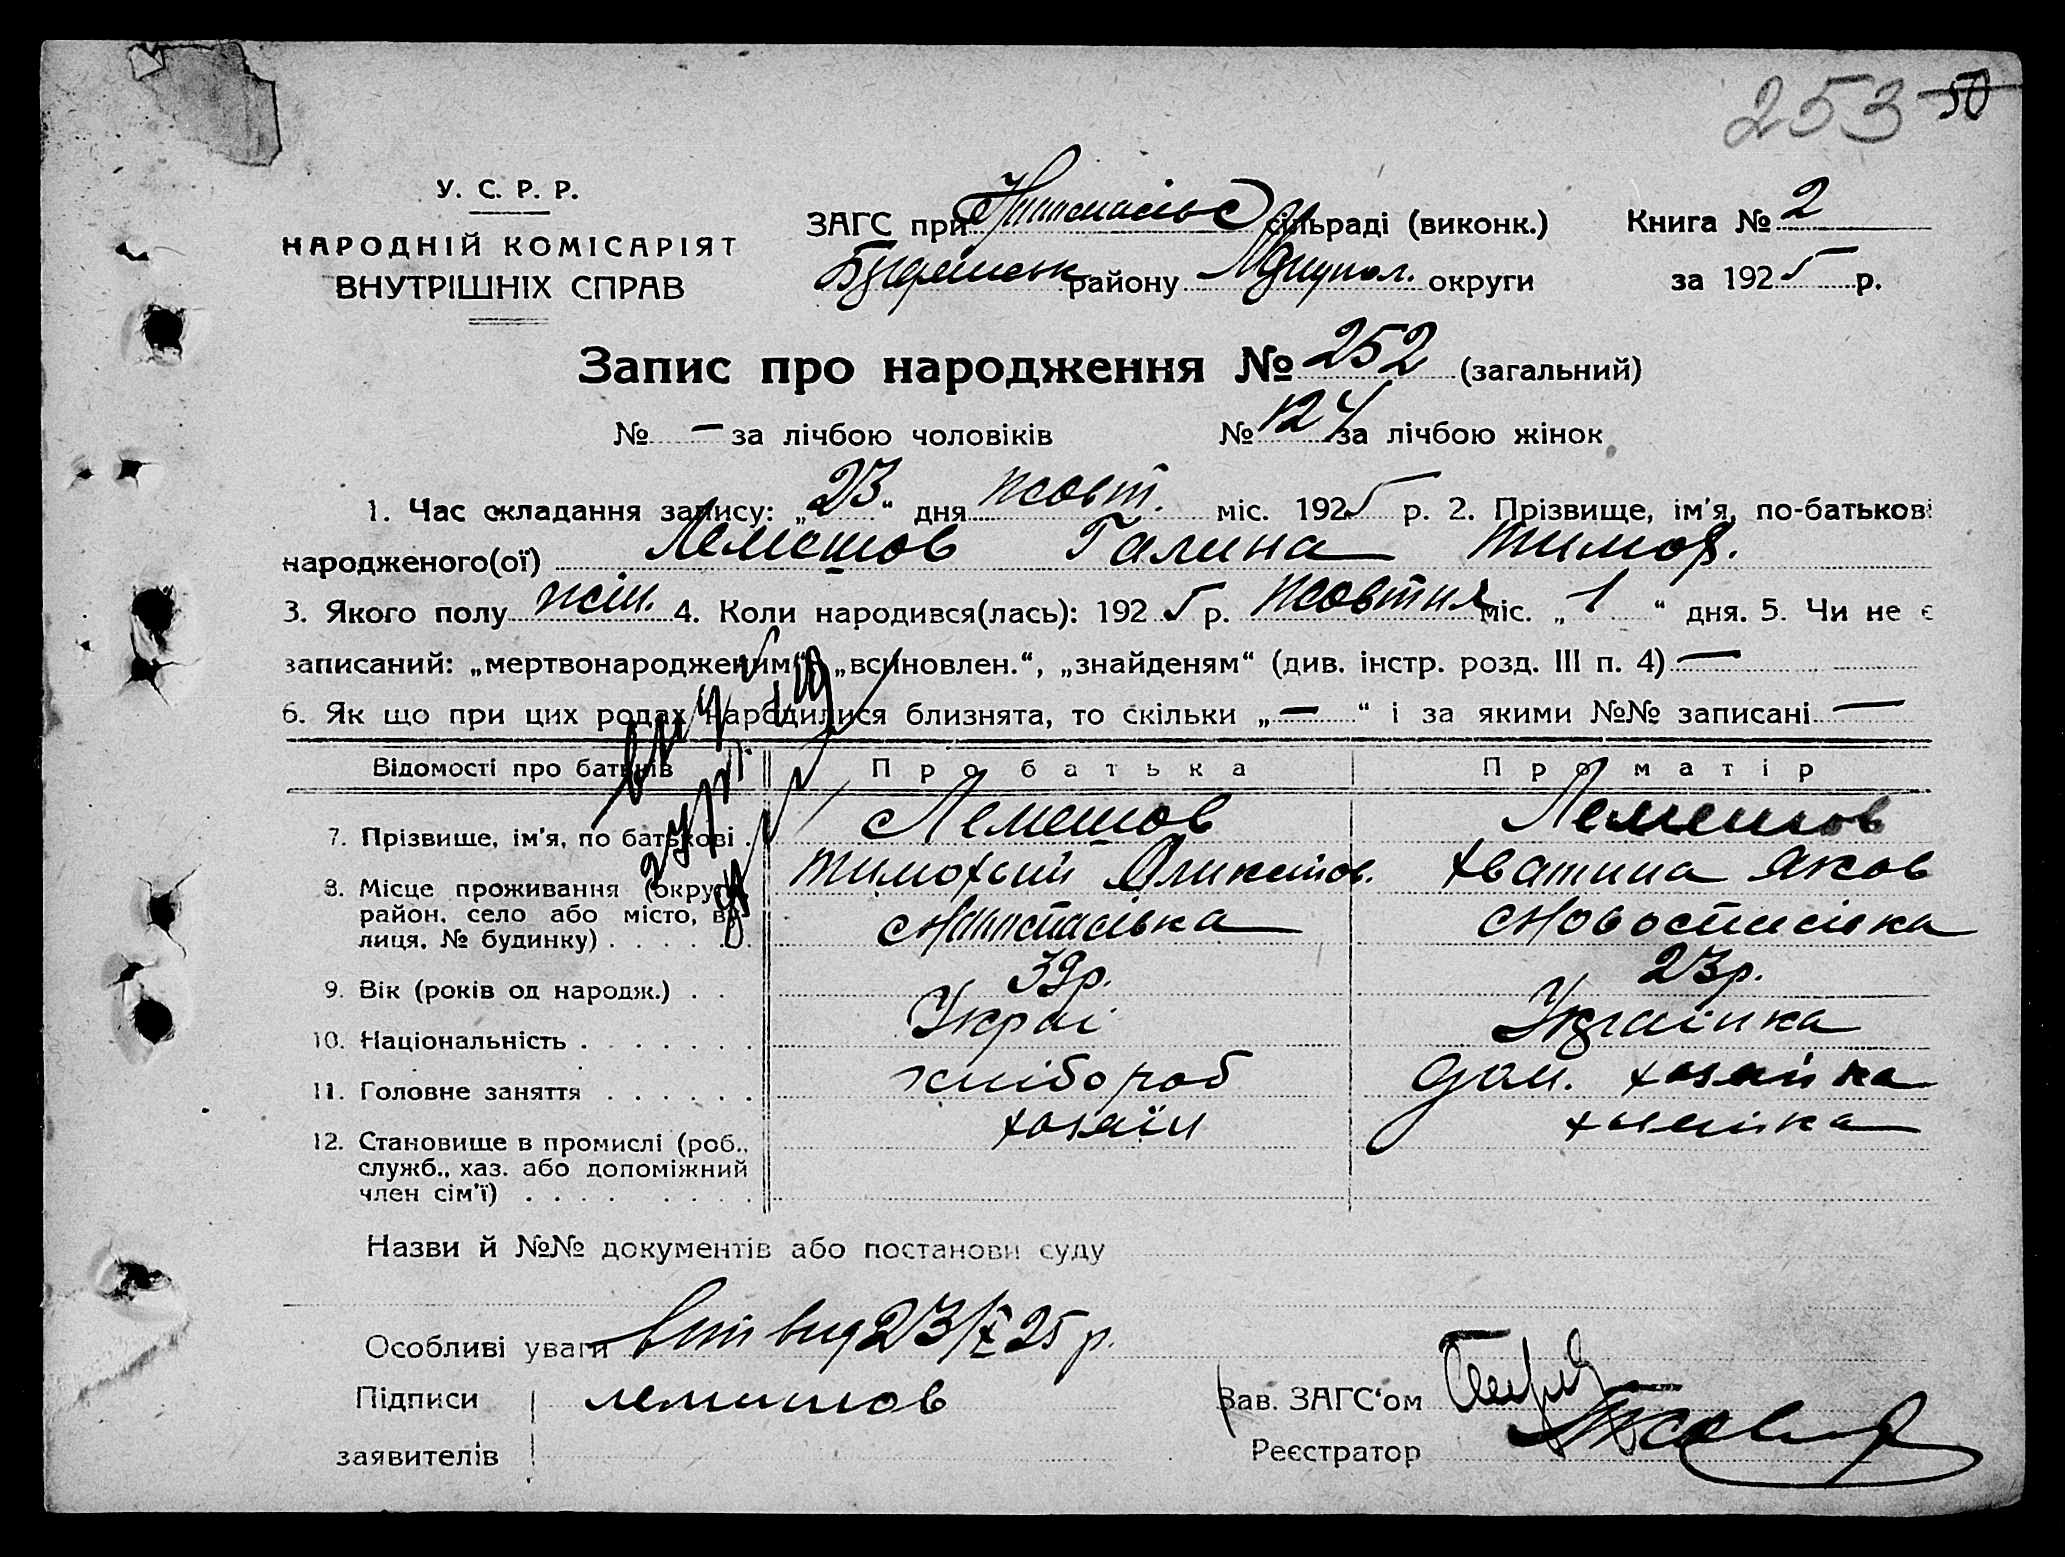 253 50
У. С. Р. Р.
НАРОДНІЙ КОМІСАРІЯТ
ВНУТРІШНІХ СПРАВ
ЗАГС при сільраді (виконк.)
району округи
Книга № 2
за 1925 р.
Запис про народження № 252 (загальний)
№ — за лічбою чоловіків № 124 за лічбою жінок
1. Час складання запису: „23“ дня жовт. міс. 1925 р. 2. Прізвище, ім'я, по-батькові
народженого(ої) Лемешов Галина Тимоф.
3. Якого полу жін. 4. Коли народився(лась): 1925 р. Жовтня міс. „1“ дня. 5. Чи не є
записаний: „мертвонародженим“, „всиновлен.“, „знайденям“ (див. інстр. розд. III п. 4) —
6. Як що при цих родах народилися близнята, то скільки „—“ і за якими №№ записані —
Відомості про батьків Про батька Про матір
7. Прізвище, ім'я, по батькові . Лемешов Лемешов
Тимофьий Хватина Яков
8. Місце проживання (округа,
район, село або місто, ву-
лиця, № будинку) . . . . .
9. Вік (років од народж.) . . 39р. 23р.
10. Національність . . . . . . Украі Украінка
11. Головне заняття . . . . . . хлібороб дом. хозяйка
12. Становище в промислі (роб., хозяїн хозяйка
служб., хаз. або допоміжний
член сім'ї) . . . . . . . .
Назви й №№ документів або постанови суду
Особливі уваги 23/X 25 р.
Підписи лемишов
заявителів
Зав. ЗАГС'ом
Реєстратор